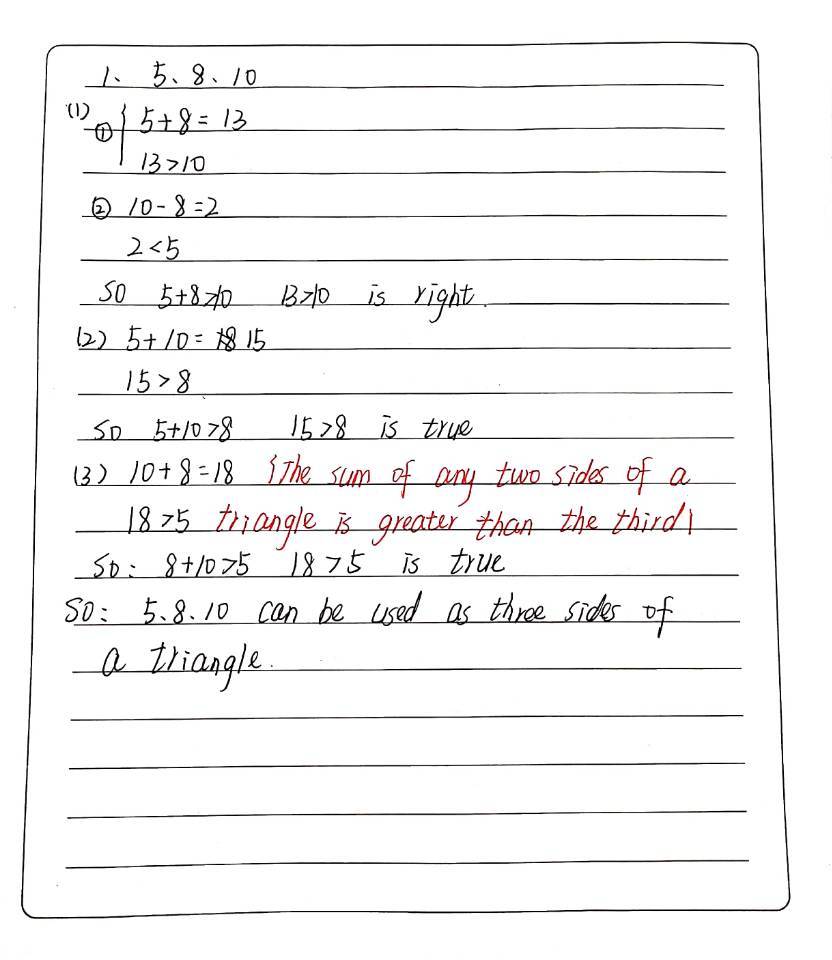 1、 5、8、10
(1) ① { 5+8=13
13>10
② 10-8=2
2<5
SO 5+8>10 13>10 is right.
(2) 5+10= 15
15>8
SO 5+10>8 15>8 is true
(3) 10+8=18 {The sum of any two sides of a
18>5 triangle is greater than the third}
SO: 8+10>5 18>5 is true
SO: 5、8、10 can be used as three sides of
a triangle.